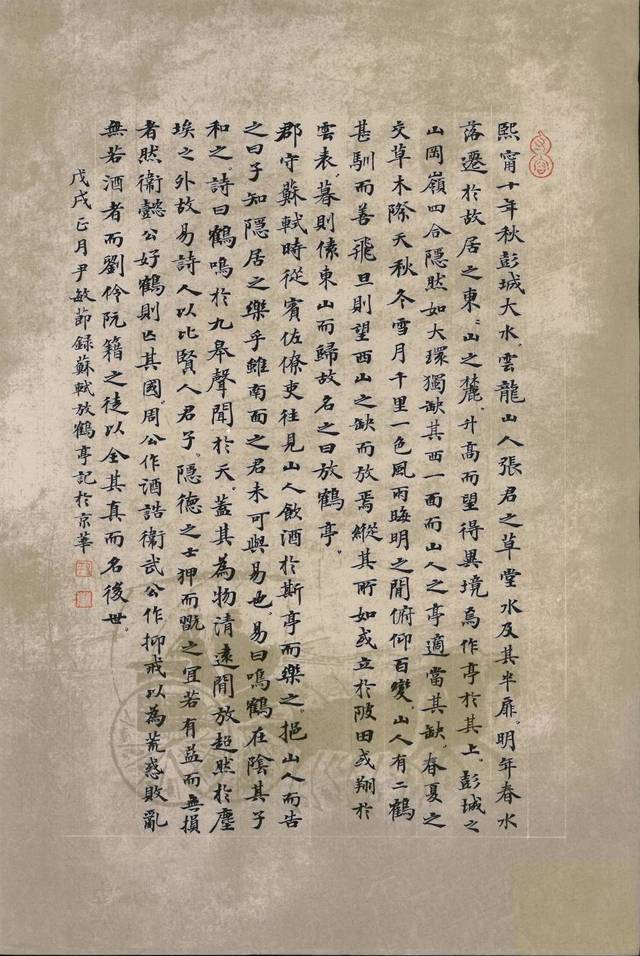 熙甯十年秋彭城大水雲龍山人張君之草堂水及其半扉明年春水
落遷於故居之東〻山之麓升高而望得異境焉作亭於其上彭城之
山岡嶺四合隱然如大環獨缺其西一面而山人之亭適當其缺春夏之
交草木際天秋冬雪月千里一色風雨晦明之間俯仰百變山人有二鶴
甚馴而善飛旦則望西山之缺而放焉縱其所如或立於陂田或翔於
雲表暮則傃東山而歸故名之曰放鶴亭
郡守蘇軾時從賓佐僚吏往見山人飲酒於斯亭而樂之挹山人而告
之曰子知隱居之樂乎雖南面之君未可與易也易曰鳴鶴在陰其子
和之詩曰鶴鳴於九皋聲聞於天蓋其為物清遠閒放超然於塵
埃之外故易詩人以比賢人君子隱德之士狎而翫之宜若有益而無損
者然衛懿公好鶴則亡其國周公作酒誥衛武公作抑戒以為荒惑敗亂
無若酒者而劉伶阮籍之徒以全其真而名後世
戊戌正月尹敏節錄蘇軾放鶴亭記於京華